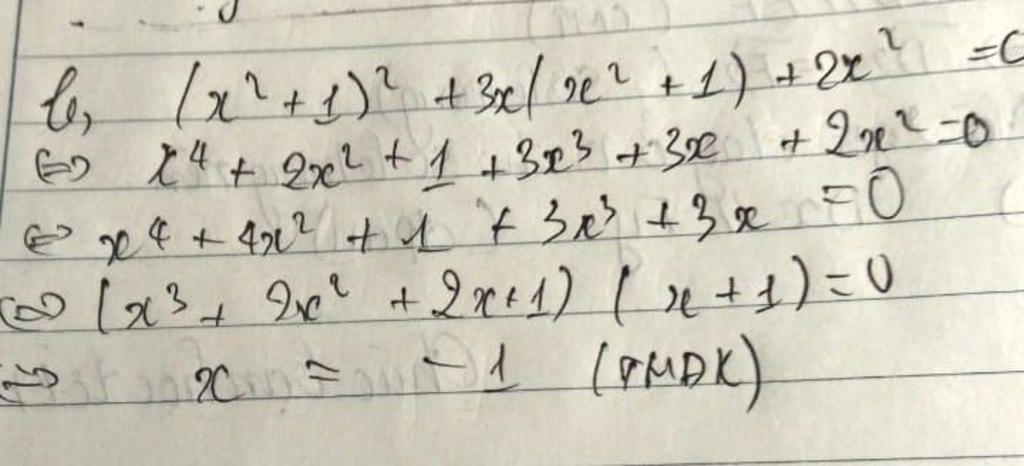 b, (x² + 1)² + 3x(x² + 1) + 2x² = 0
⇔ x⁴ + 2x² + 1 + 3x³ + 3x + 2x² = 0
⇔ x⁴ + 4x² + 1 + 3x³ + 3x = 0
⇔ (x³ + 2x² + 2x + 1) (x + 1) = 0
⇔ x = -1 (TMĐK)